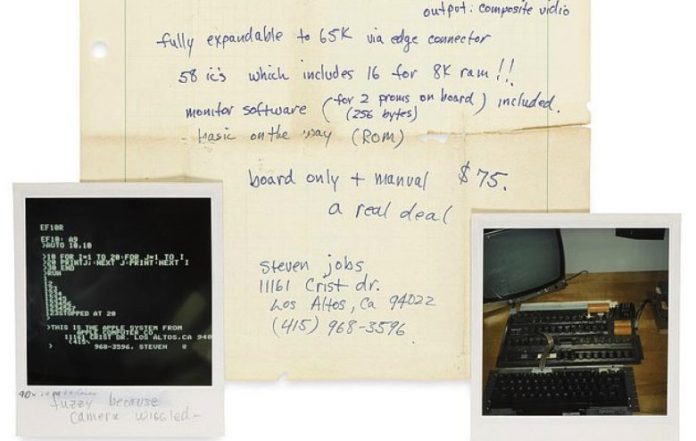 output: composite vidio
fully expandable to 65K via edge connector
58 ic's which includes 16 for 8K ram!!
monitor software (for 2 proms on board) included.
(256 bytes)
basic on the way (ROM)
board only + manual $75.
a real deal
Steven jobs
11161 Crist dr.
Los Altos, Ca 94022
(415) 968-3596
EF10R
EF10: A9
>AUTO 10,10
>10 FOR I=1 TO 20:FOR J=1 TO I
>20 PRINTJ;:NEXT J:PRINT:NEXT I
>30 END
>RUN
STOPPED AT 20
>THIS IS THE APPLE SYSTEM FROM
APPLE COMPUTER CO
11161 CRIST DR. LOS ALTOS,CA 940
(415)
> 968-3596. STEVEN
fuzzy because
camera wiggled-